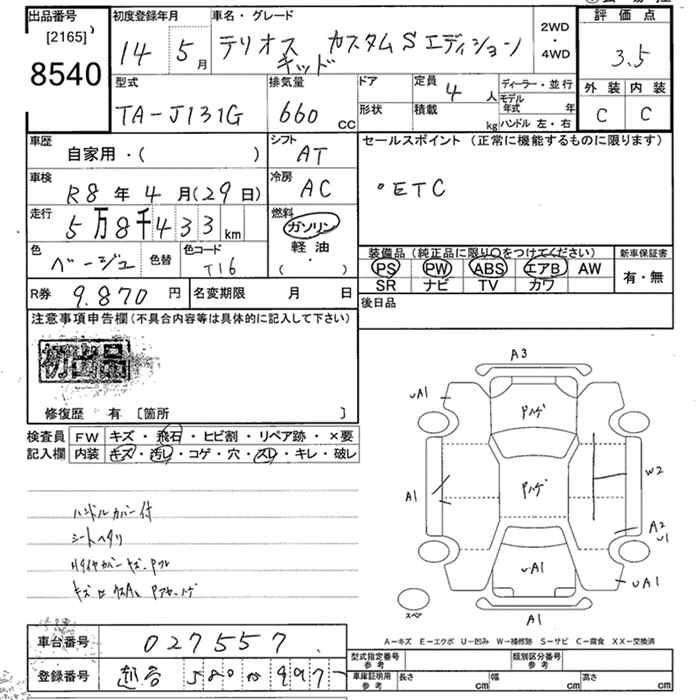 出品番号 初度登録年月 車名・グレード 評価点
[2165]
8540
14 年 5 月 テリオス キッド カスタムS エディション 2WD・4WD 3.5
型式 排気量 ドア 定員 4 人 ディーラー・並行 外装 内装
TA-J131G 660 cc 形状 積載 kg モデル年式 年 C C
ハンドル 左・右
車歴 自家用・( ) シフト AT セールスポイント (正常に機能するものに限ります)
車検 R8年4月(29日) 冷房 AC ・ETC
走行 5万8千433km 燃料 ガソリン
軽油
(・)
色 ベージュ 色替 色コード T16 装備品(純正品に限り○をつけてください) 新車保証書
PS PW ABS エアB AW 有・無
SR ナビ TV カワ
R券 9.870円 名変期限 月 日 後日品
注意事項申告欄(不具合内容等は具体的に記入して下さい)
初出品
修復歴 有 [箇所 ]
検査員 FW キズ・飛石・ヒビ割・リペア跡・×要
記入欄 内装 キズ・汚レ・コゲ・穴・スレ・キレ・破レ
ハンドルカバー付
シートヘタリ
A3
uA1
Pハゲ
A1
Pハゲ
W2
A2
U1
uA1
uA1
スペア
A1
A-キズ E-エクボ U-凹み W-補修跡 S-サビ C-腐食 XX-交換済
車台番号 027557
登録番号 580 997
型式指定番号 参考 類別区分番号 参考
車庫証明用 参考 長さ cm 幅 cm 高さ cm